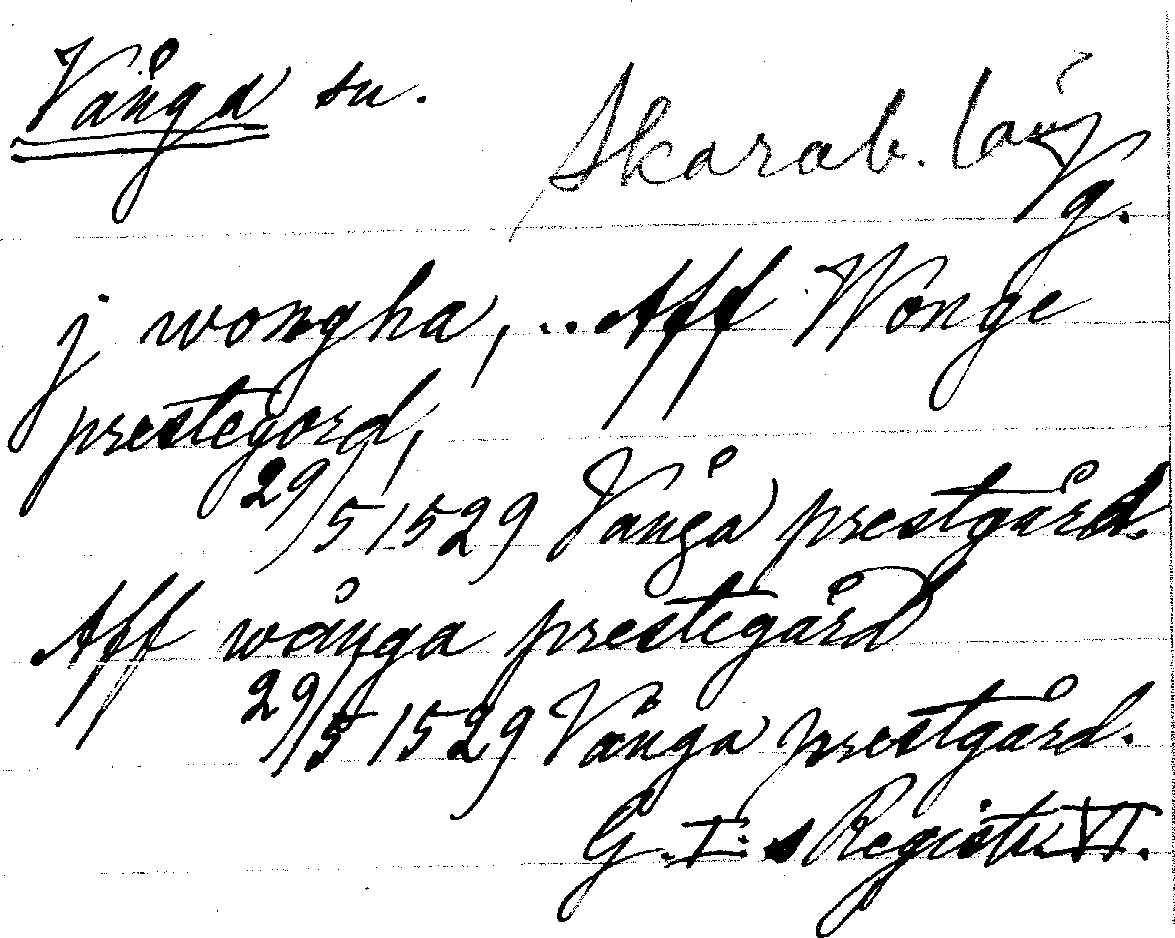 Vånga sn.
Skarab. län
Vg.
j wongha, .. Aff Wonge
prestegord,
29/5 1529 Vånga prestgård.
Aff wånga prestegård
29/5 1529 Vånga prestgård.
G. I:s Registr. VI.